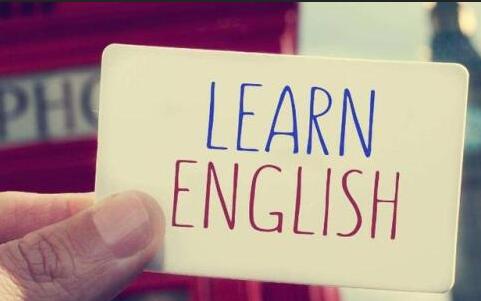 PHO
LEARN
ENGLISH